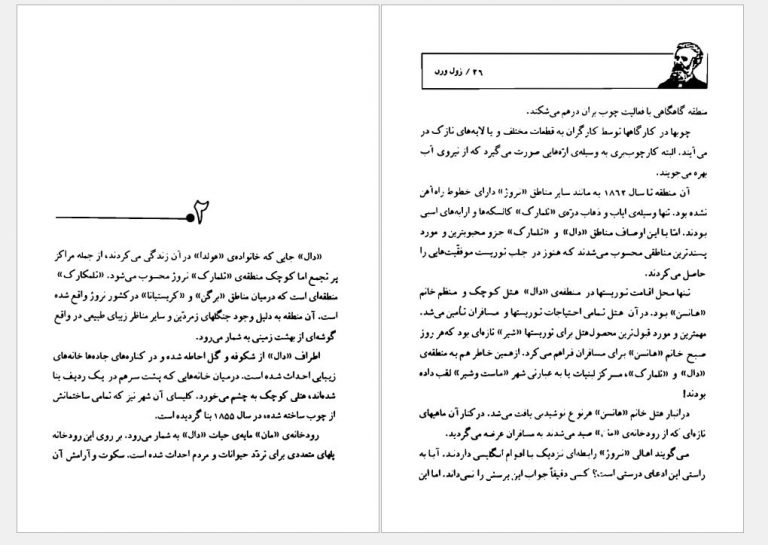 ۲
«دال» جایی که خانواده‌ی «هولدا» در آن زندگی می‌کردند، از جمله مراکز
پر تجمع اما کوچک منطقه‌ی «تلمارک» نروژ محسوب می‌شود. «تلمکارک»
منطقه‌ای است که درمیان مناطق «برگن» و «کریستیانا» در کشور نروژ واقع شده
است. آن منطقه به دلیل وجود جنگلهای زمردّین و سایر مناظر زیبای طبیعی در واقع
گوشه‌ای از بهشت زمینی به شمار می‌رود.
اطراف «دال» از شکوفه و گل احاطه شده و در کناره‌های جاده‌ها خانه‌های
زیبایی احداث شده است. درمیان خانه‌هایی که پشت سرهم در یک ردیف بنا
شده‌اند، هتلی کوچک به چشم می‌خورد. کلیسای آن شهر نیز که تمامی ساختمانش
از چوب ساخته شده، در سال ۱۸۵۵ بنا گردیده است.
رودخانه‌ی «مان» مایه‌ی حیات «دال» به شمار می‌رود. بر روی این رودخانه
پلهای متعددی برای تردّد حیوانات و مردم احداث شده است. سکوت و آرامش آن
۲۶ / ژول ورن
منطقه گاهگاهی با فعالیت چوب بران درهم می‌شکند.
چوبها در کارگاهها توسط کارگران به قطعات مختلف و یا لایه‌های نازک در
می‌آیند. البته کارچوب‌بری به وسیله‌ی ارّه‌هایی صورت می‌گیرد که از نیروی آب
بهره می‌جویند.
آن منطقه تا سال ۱۸۶۲ به مانند سایر مناطق «نروژ» دارای خطوط راه‌آهن
نشده بود. تنها وسیله‌ی ایاب و ذهاب درّه‌ی «تلمارک» کالسکه‌ها و ارابه‌های اسبی
بودند. امّا با این اوصاف مناطق «دال» و «تلمارک» جزو محبوبترین و مورد
پسندترین مناطقی محسوب می‌شدند که هنوز در جلب توریست موفقّیت‌هایی را
حاصل می‌کردند.
تنها محل اقامت توریستها در منطقه‌ی «دال» هتل کوچک و منظم خانم
«هانسن» بود. در آن هتل تمامی احتیاجات توریستها و مسافران تأمین می‌شد.
مهمترین و مورد قبول‌ترین محصول هتل برای توریستها «شیر» تازه‌ای بود که هر روز
صبح خانم «هانسن» برای مسافران فراهم می‌کرد. ازهمین خاطر هم به منطقه‌ی
«دال» و «تلمارک»، مرکز لبنیات یا به عبارتی شهر «ماست وشیر» لقب داده
بودند!
درانبار هتل خانم «هانسن» هرنوع نوشیدنی یافت می‌شد. در کنار آن ماهیهای
تازه‌ای که از رودخانه‌ی «مان» صید می‌شدند به مسافران عرضه می‌گردید.
می‌گویند اهالی «نروژ» رابطه‌ای نزدیک با اقوام انگلیسی دارند. آیا به
راستی این ادعای درستی است؟ کسی دقیقاً جواب این پرسش را نمی‌داند. اما این